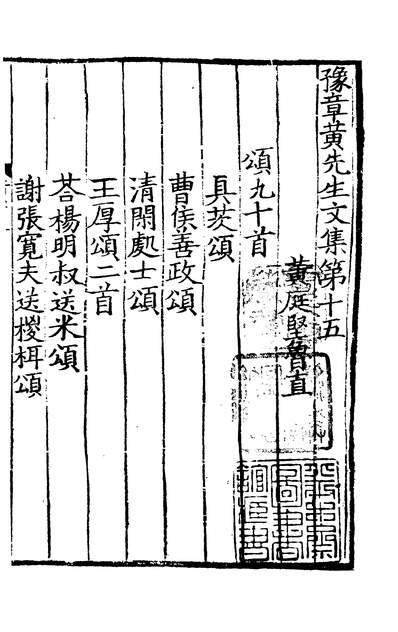 豫章黃先生文集第十五
黃庭堅魯直
頌九十首
具茨頌
曹侯善政頌
清閑處士頌
王厚頌二首
荅楊明叔送米頌
謝張寬夫送椶栮頌